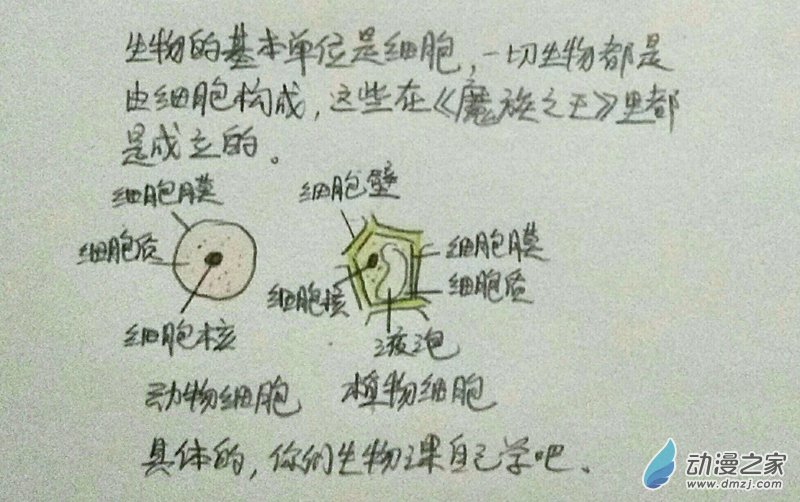 生物的基本单位是细胞,一切生物都是
由细胞构成,这些在《魔族之王》里都
是成立的。
细胞膜
细胞质
细胞核
动物细胞
细胞壁
细胞膜
细胞质
细胞核
液泡
植物细胞
具体的,你们生物课自己学吧.
动漫之家
www.dmzj.com